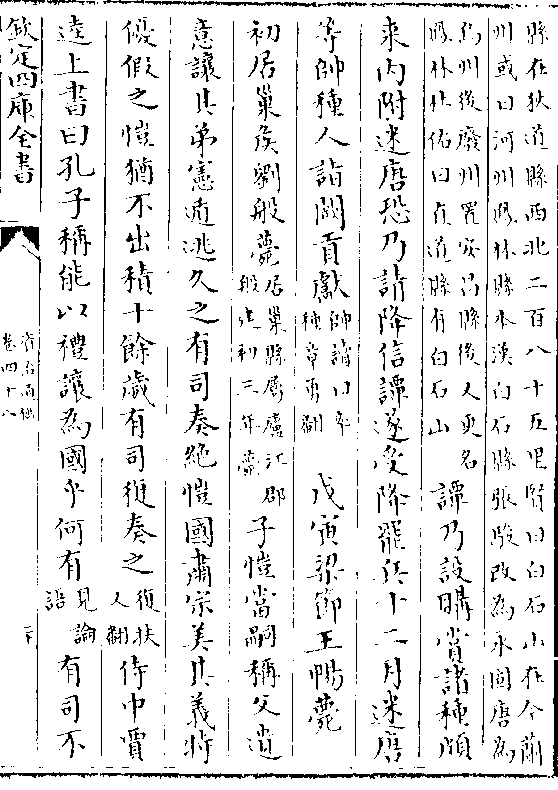 縣在狄道縣西北二百八十五里賢曰白石山在今蘭
州或曰河州鳳林縣本漢白石縣張駿改為永固唐為
烏州後廢州置安昌縣後又更名
鳳林杜佑曰貞道縣有白石山
譚乃設購賞諸種頗
來内附迷唐恐乃請降信譚遂受降罷兵十二月迷唐
等帥種人詣闕貢獻
帥讀曰率
種章勇翻
戊寅梁節王暢薨
初居巢侯劉般薨
居巢縣屬廬江郡
般建初三年薨
子愷當嗣稱父遺
意讓其弟憲遁逃久之有司奏絶愷國肅宗美其義特
優假之愷猶不出積十餘歲有司復奏之
復扶
又翻
侍中賈
逵上書曰孔子稱能以禮讓為國乎何有
見論
語
有司不
欽定四庫全書
資治通鑑
卷四十八